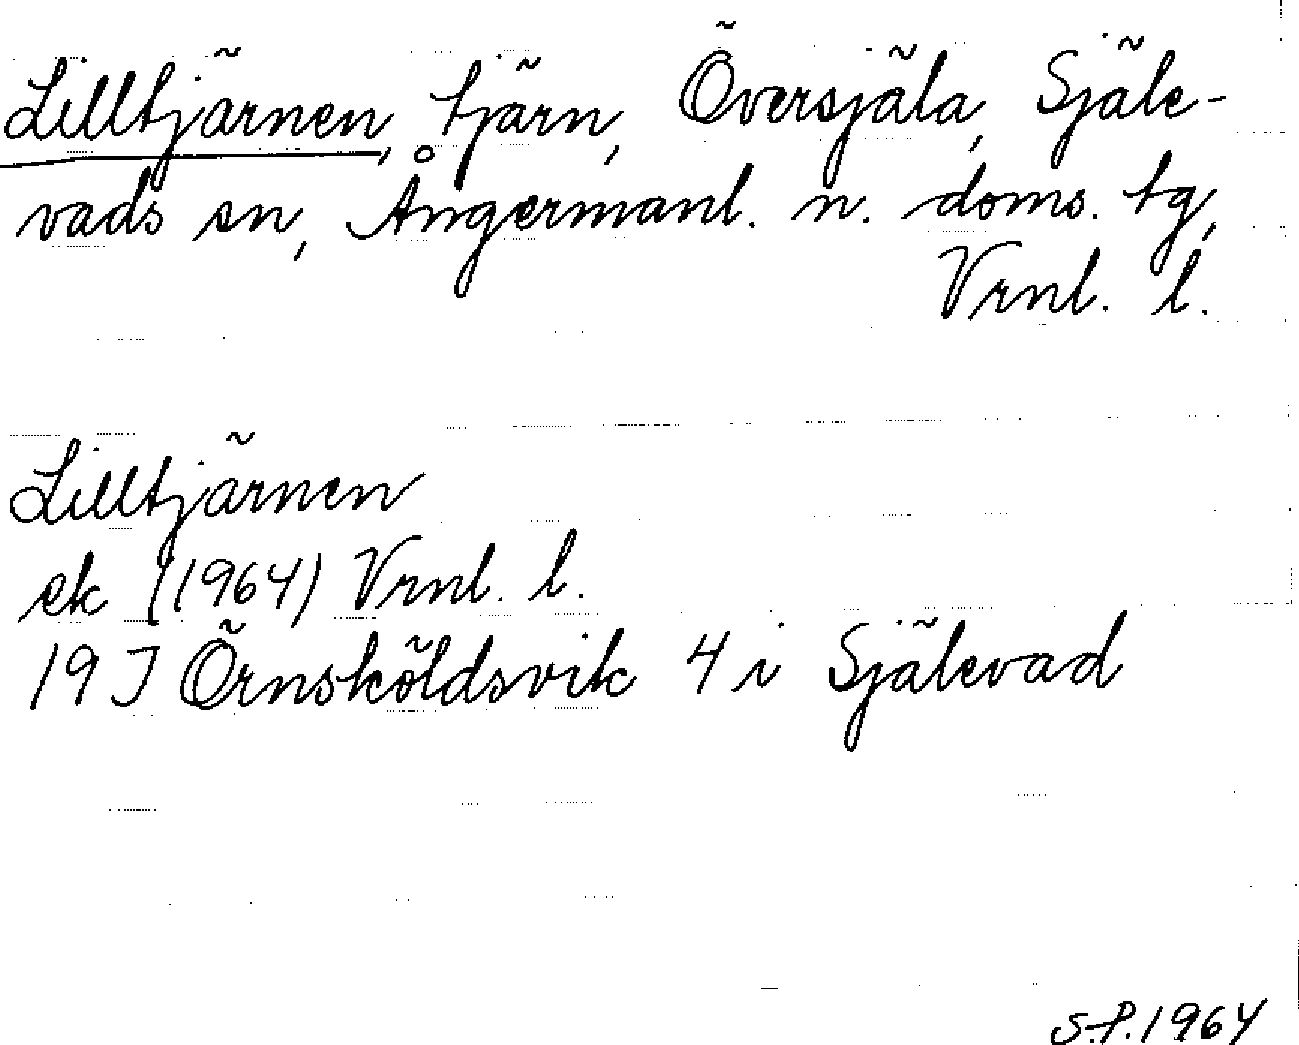 Lilltjärnen, tjärn, Översjäla, Själe-
vads sn, Ångermanl. n. doms. tg,
Vrnl. l.
Lilltjärnen
ek (1964) Vrnl. l.
19 J Örnsköldsvik 4 i Själevad
S.P. 1964